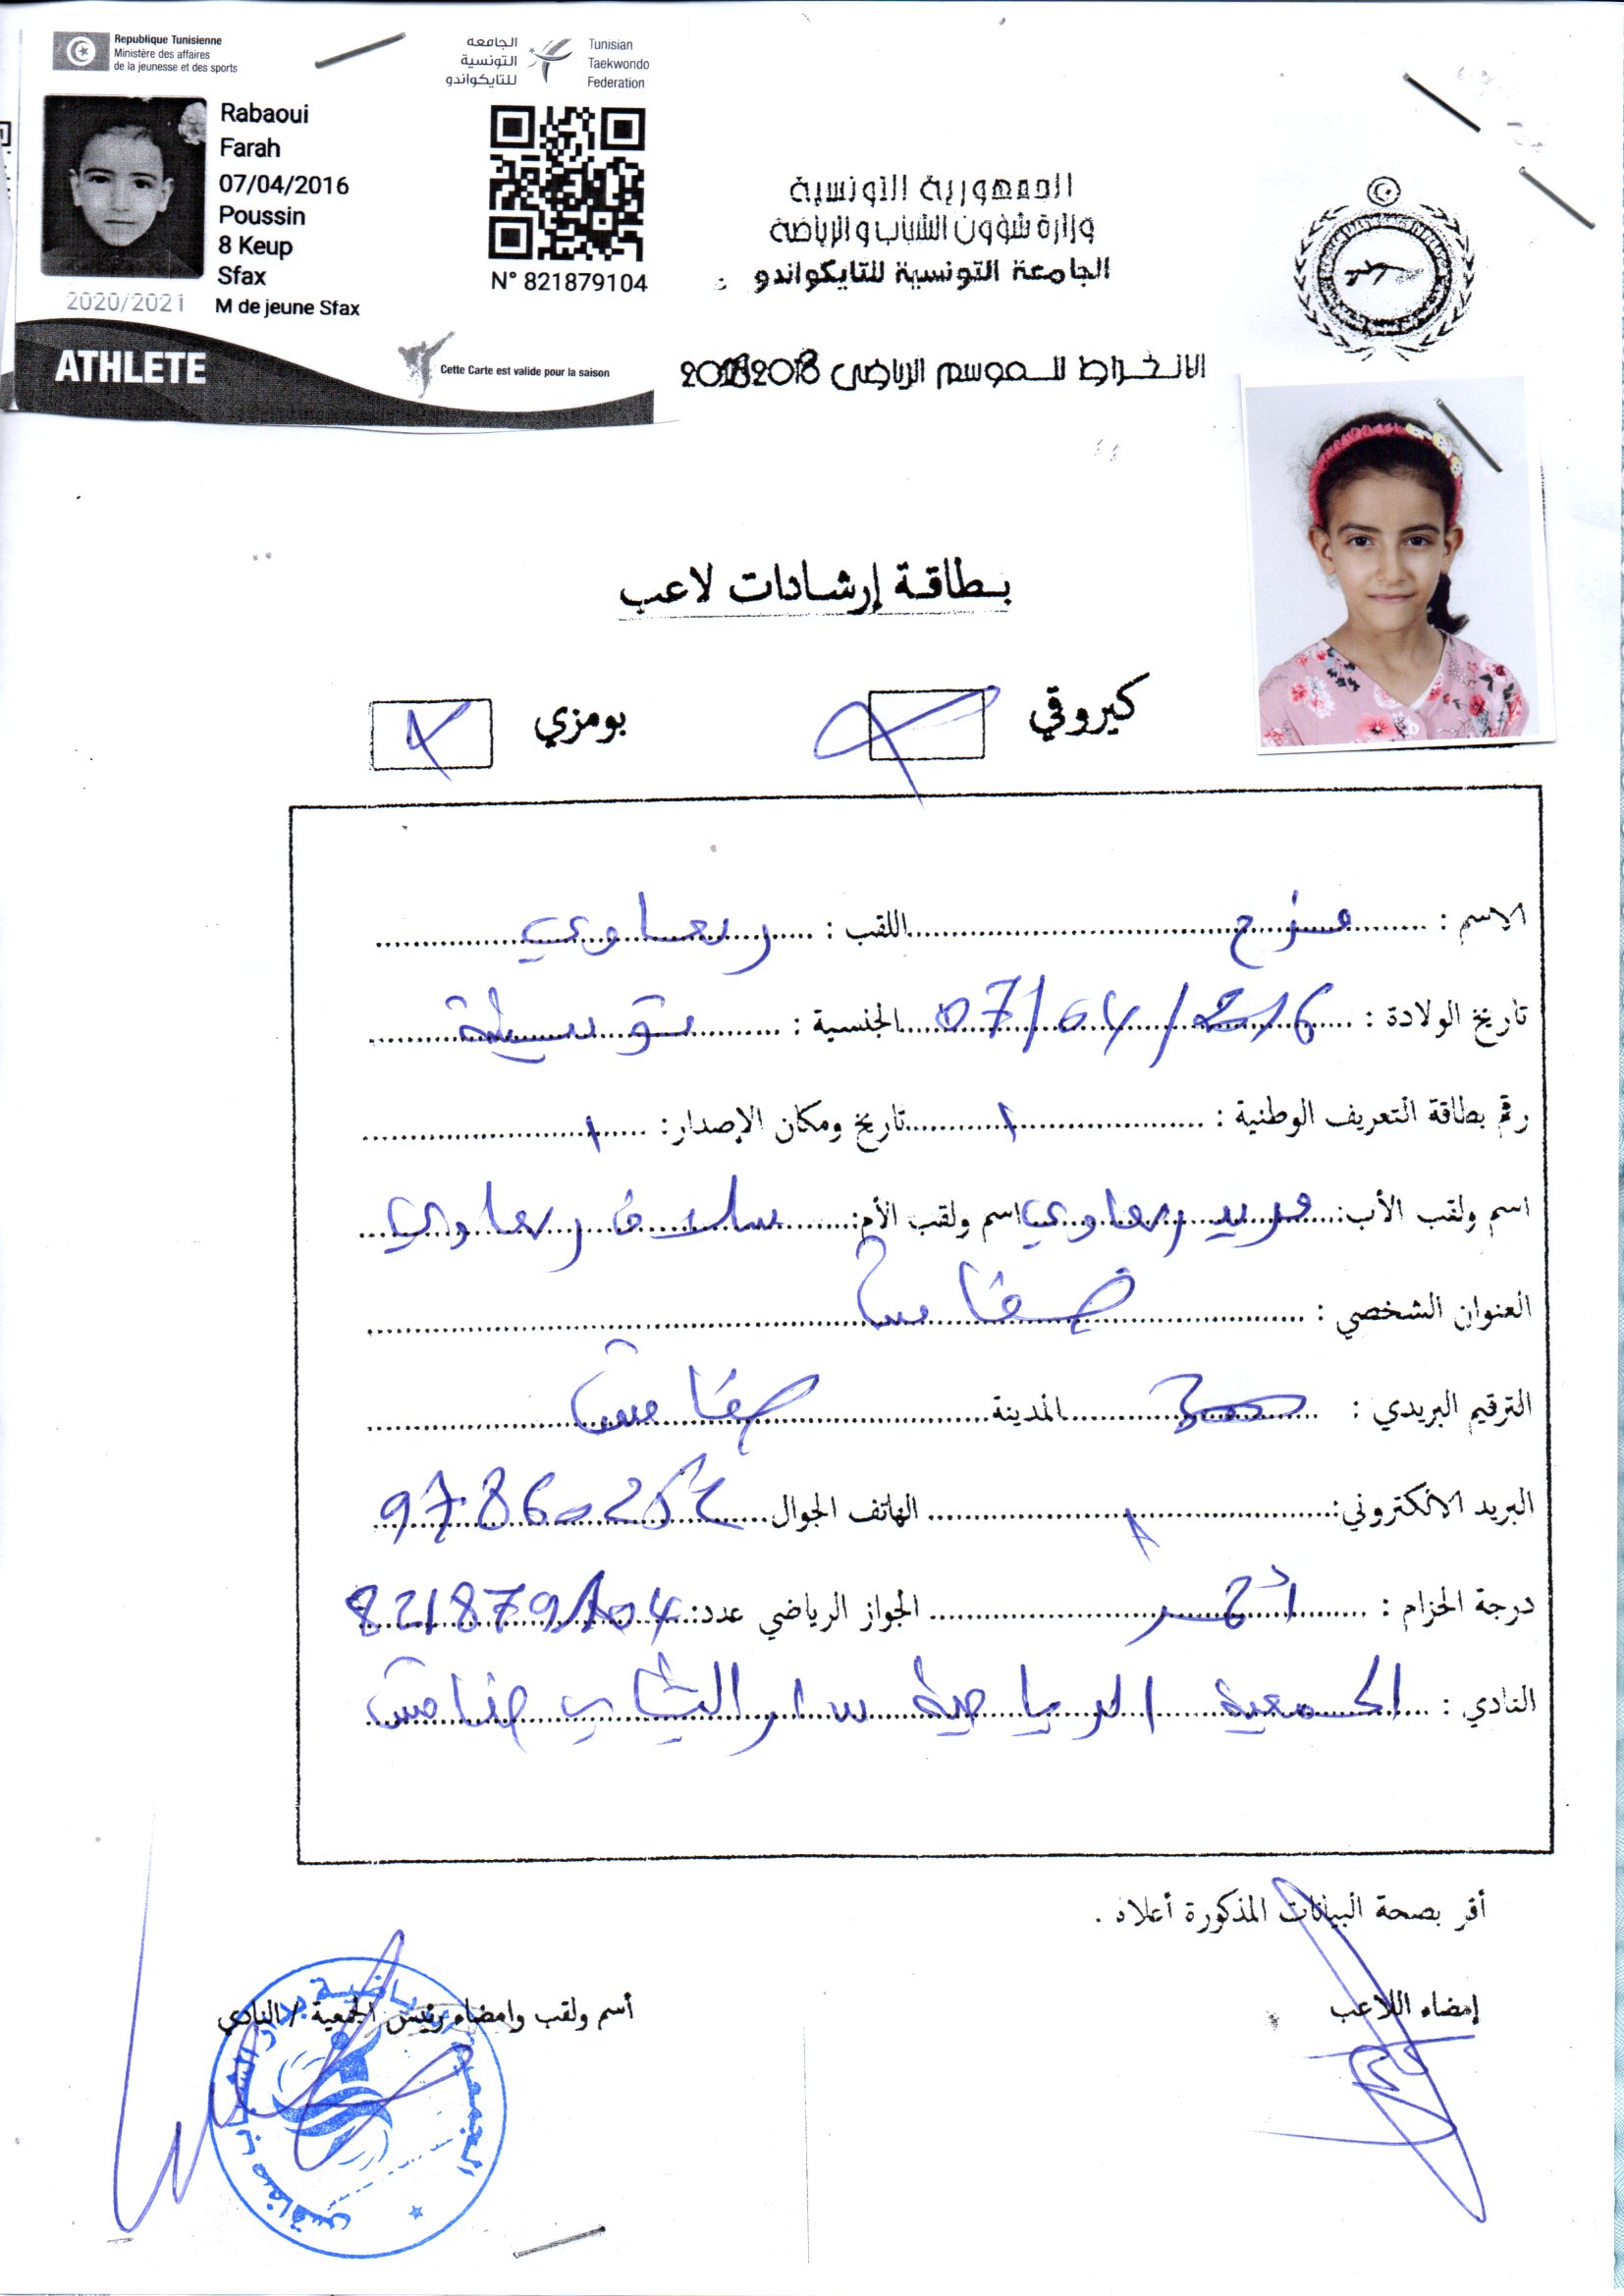 Republique Tunisienne
Ministère des affaires
de la jeunesse et des sports
الجامعة
التونسية
للتايكواندو
Tunisian
Taekwondo
Federation
Rabaoui
Farah
07/04/2016
Poussin
8 Keup
Sfax
M de jeune Sfax
2020/2021
N° 821879104
ATHLETE
Cette Carte est valide pour la saison
الجمهورية التونسية
وزارة شؤون الشباب والرياضة
الجامعة التونسية للتايكواندو
الانخراط للموسم الرياضي
بطاقة إرشادات لاعب
كيروقي
بومزي
الاسم : فرح اللقب : ربعاوي
تاريخ الولادة : 07/04/2016 الجنسية : تونسية
رقم بطاقة التعريف الوطنية : تاريخ ومكان الإصدار:
اسم ولقب الأب: ربعاوي اسم ولقب الأم: ربعاوي
العنوان الشخصي : صفاقس
الترقيم البريدي : المدينة صفاقس
البريد الالكتروني: الهاتف الجوال
درجة الحزام : أحمر الجواز الرياضي عدد: 821879104
النادي : الجمعية الرياضية بدار الشباب صفاقس
أقر بصحة البيانات المذكورة أعلاه .
إمضاء اللاعب
أسم ولقب وامضاء رئيس الجمعية / النادي
الجمعية الرياضية بدار الشباب صفاقس